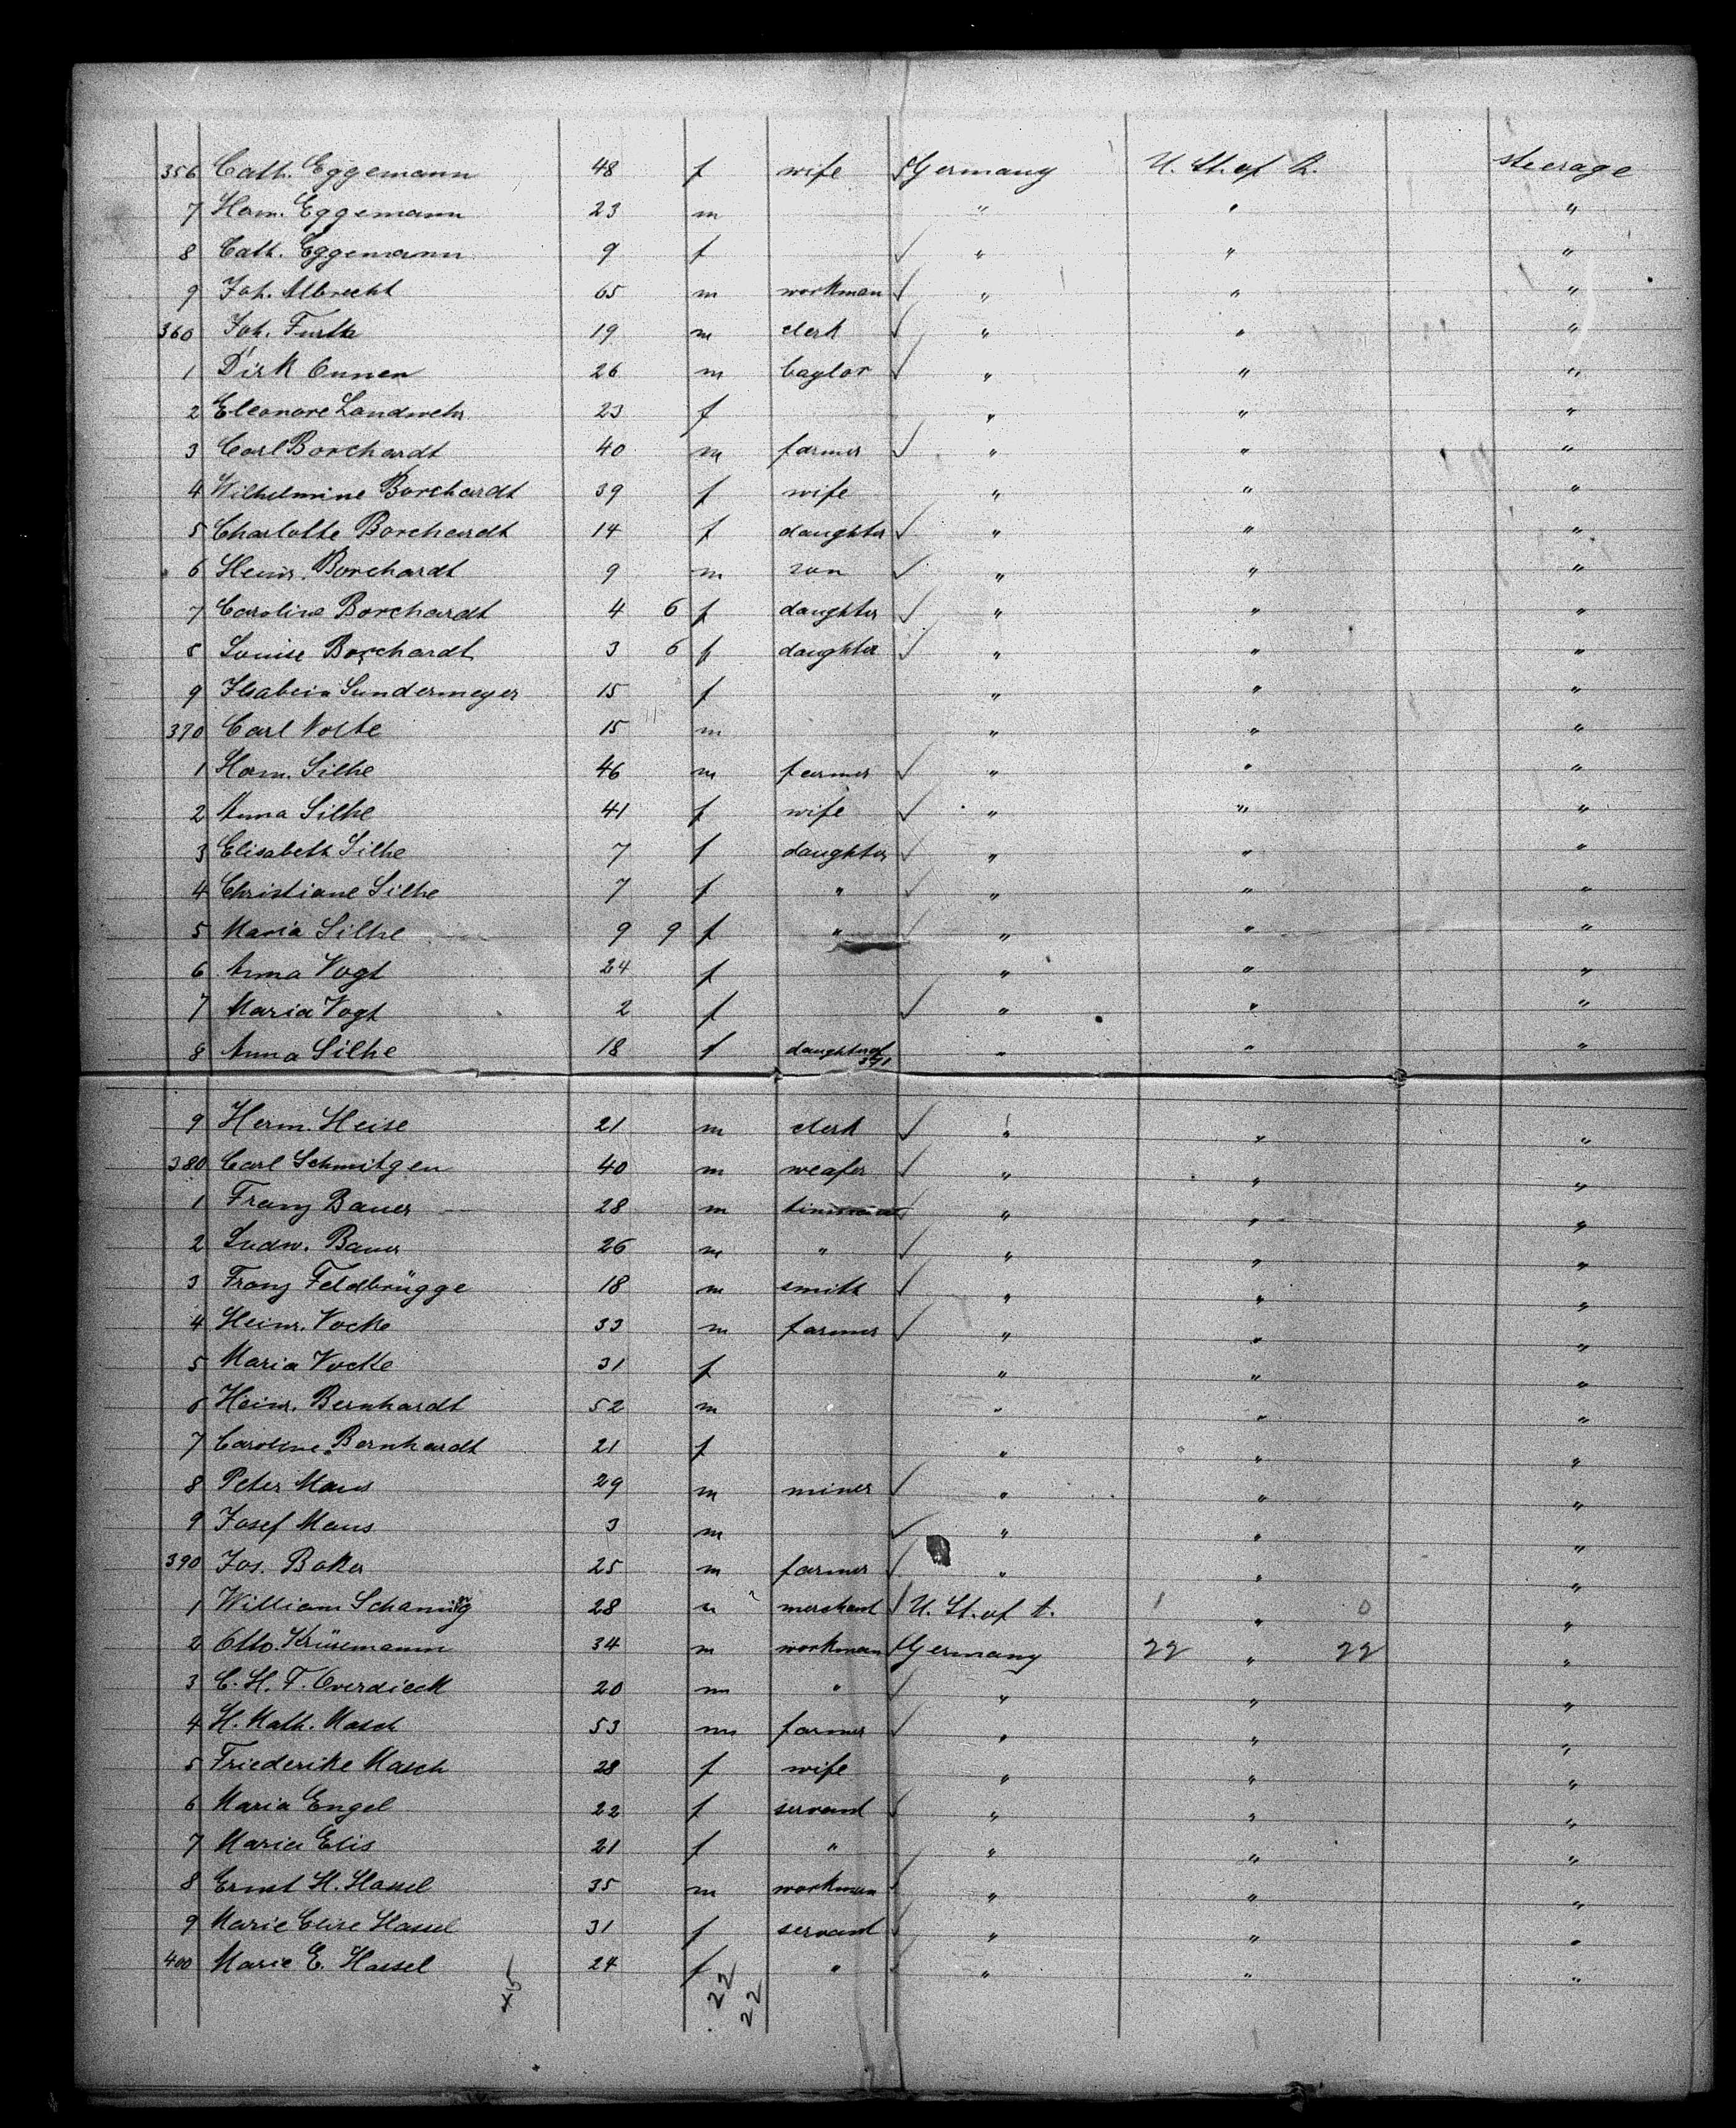 356 Cath. Eggemann 48 f wife Germany U. St. of A. steerage
7 Herm. Eggemann 23 m " " "
8 Cath. Eggemann 9 f " " "
9 Joh. Albrecht 65 m workman " " "
360 Joh. Furth 19 m clerk " " "
1 Dirk Onnen 26 m taylor " " "
2 Eleonore Landwehr 23 f " " "
3 Carl Borchardt 40 m farmer " " "
4 Wilhelmine Borchardt 39 f wife " " "
5 Charlotte Borchardt 14 f daughter " " "
6 Heinr. Borchardt 9 m son " " "
7 Caroline Borchardt 4 6 f daughter " " "
8 Louise Borchardt 3 6 f daughter " " "
9 Ilsabein Sundermeyer 15 f " " "
370 Carl Nolte 15 m " " "
1 Herm. Silhe 46 m farmer " " "
2 Anna Silhe 41 f wife " " "
3 Elisabeth Silhe 7 f daughter " " "
4 Christiane Silhe 7 f " " " "
5 Maria Silhe 9 9 f " " " "
6 Anna Vogt 24 f " " "
7 Maria Vogt 2 f " " "
8 Anna Silhe 18 f daughter of 371 " " "
9 Herm. Heise 21 m clerk " " "
380 Carl Schmitgen 40 m weafer " " "
1 Franz Bauer 28 m " " "
2 Ludw. Bauer 26 m " " " "
3 Franz Feldbrügge 18 m smith " " "
4 Heinr. Vocke 33 m farmer " " "
5 Maria Vocke 31 f " " "
6 Heinr. Bernhardt 52 m " " "
7 Caroline Bernhardt 21 f " " "
8 Peter Maus 29 m miner " " "
9 Josef Maus 3 m " " "
390 Jos. Baker 25 m farmer " " "
1 William 28 m merchant U. St. of A. 1 " 0 "
2 Otto Krüsemann 34 m workman Germany 22 " 22 "
3 C. H. F. Overdieck 20 m " " " "
4 H. Math. Masch 53 m farmer " " "
5 Friederike Masch 28 f wife " " "
6 Maria Engel 22 f servant " " "
7 Maria Elis 21 f " " " "
8 Ernst H. Hassel 35 m workman " " "
9 Marie Elise Hassel 31 f servant " " "
400 Marie E. Hassel 24 f " " " "
45 22 22